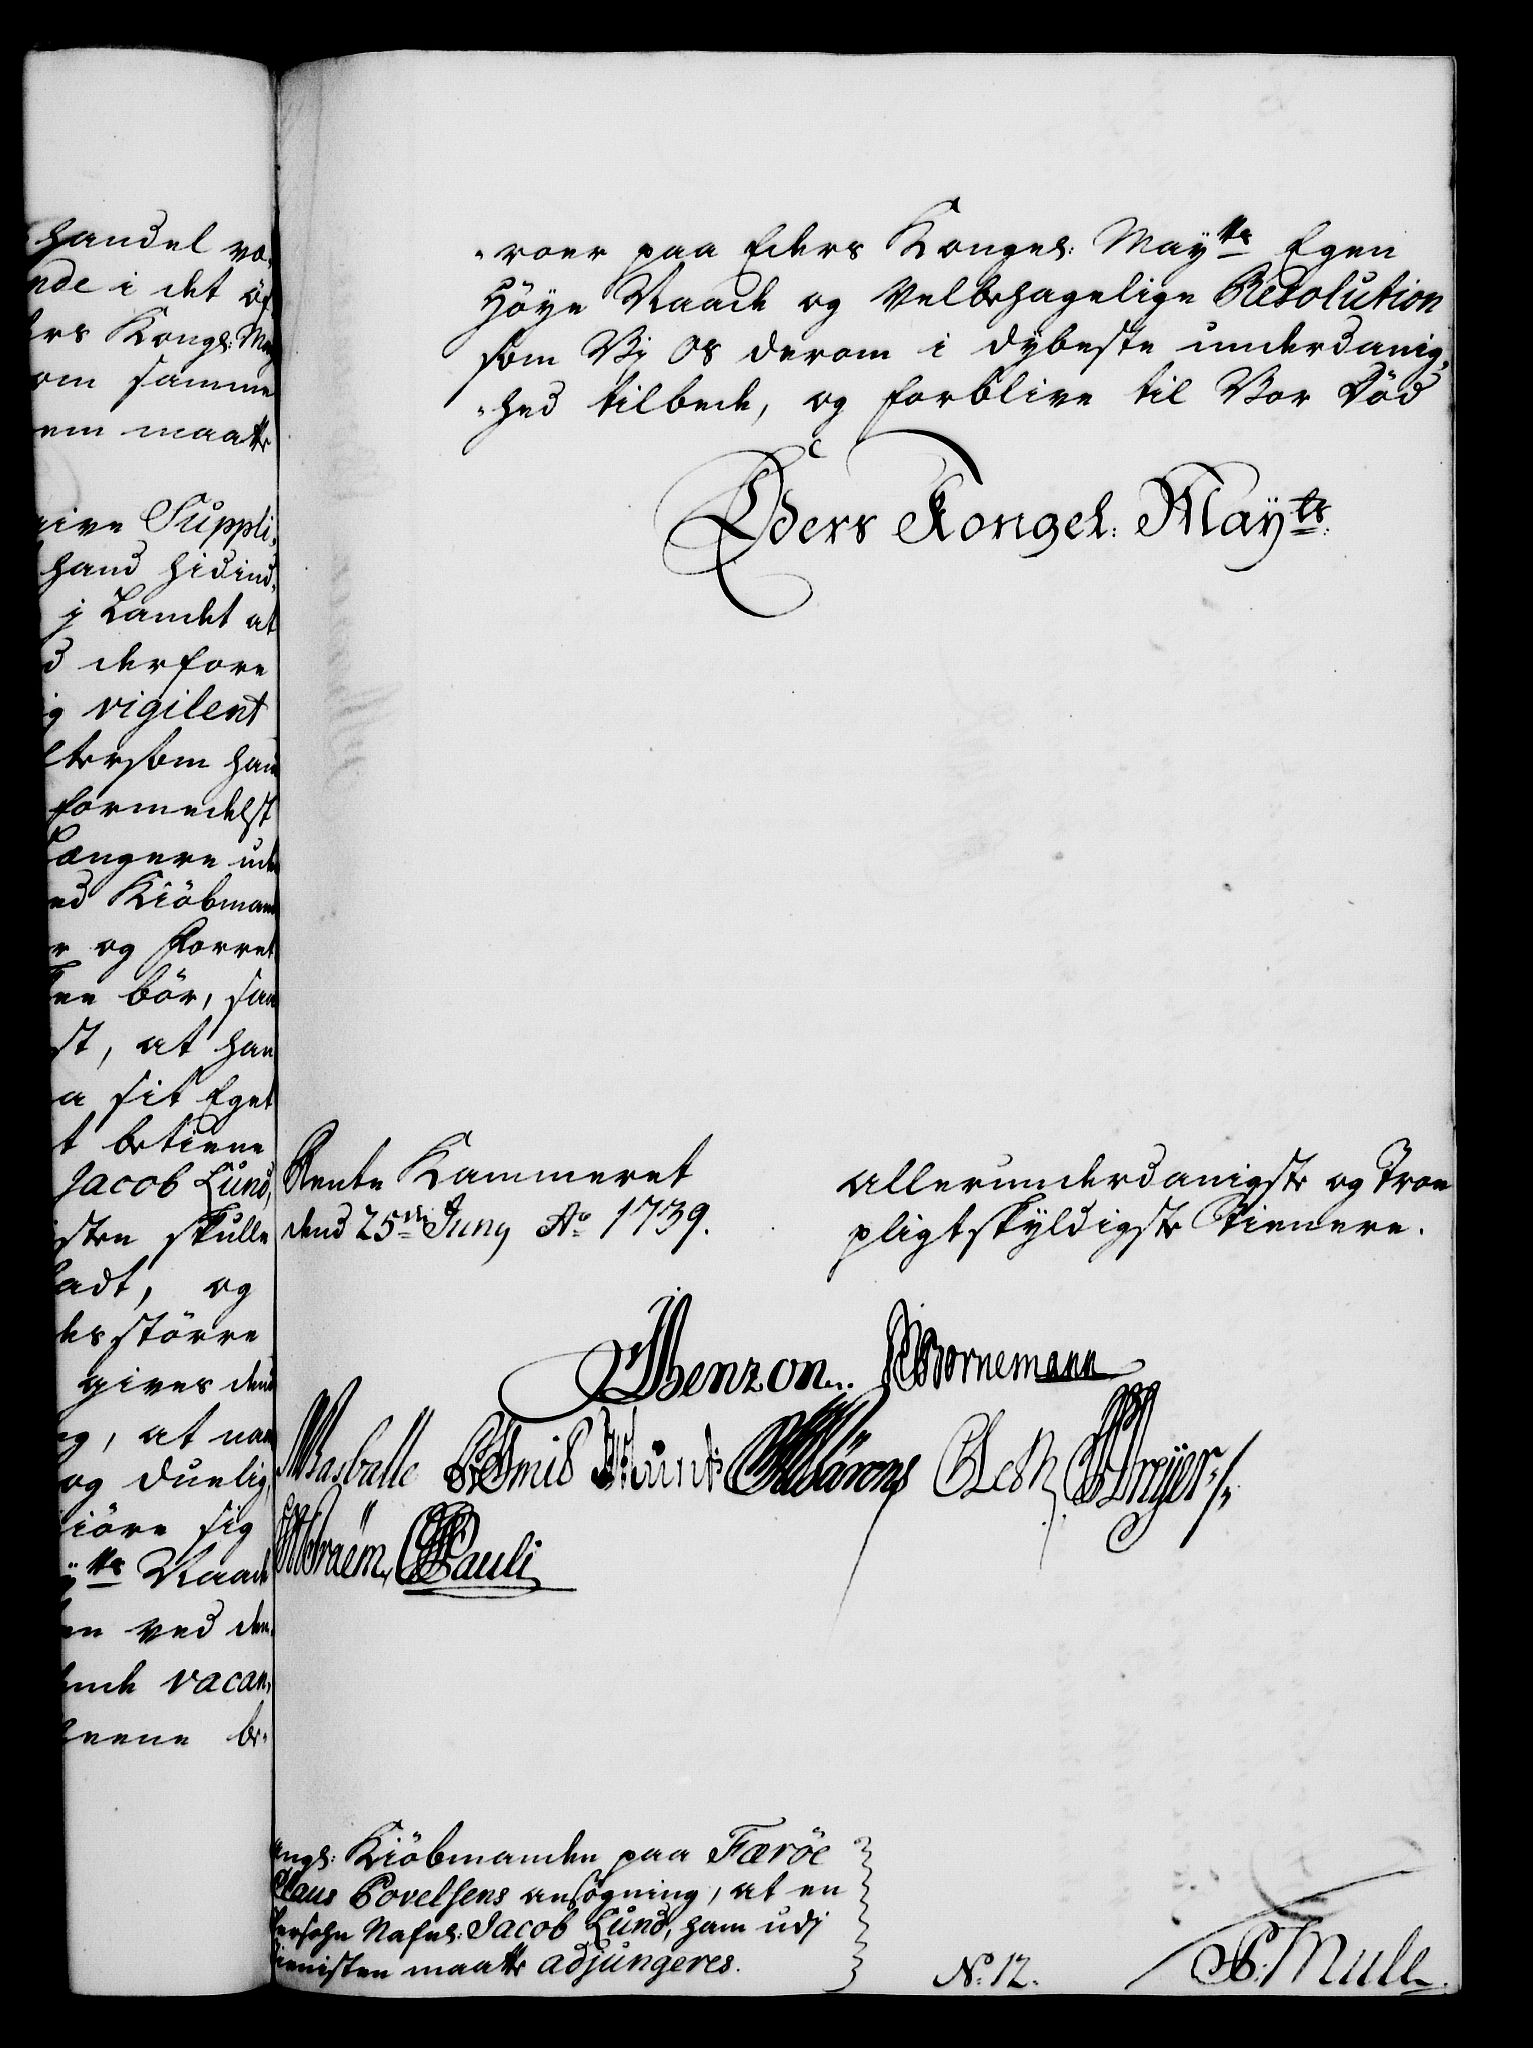 handel væ-
nde i det öf
ers Kongl: May
om samme
em maatte
give Suppli-
hand hidind-
j Landet at
d derfore
ig vigilent
eftersom han
formedelst
længere ude
ed Kiöbmand
r og Forret
en bör, saa
st, at han
a sit Eget
t betiene
Jacob Lund,
isten skulle
ladt, og
des större
gives dend
g, at naar
og duelig,
giöre sig
ytts Naade
en ved den
ende vacan-
tieene be-
-roer paa Eders Kongel: Maytts Egen
Höye Naade og Velbehagelige Resolution
som Vj os derom i dybeste underdanig-
-hed tilbede, og forblive til Vor Död
Eders Kongel: Mayts:
Rente Kammeret
dend 25de Juny Ao 1739.
allerunderdanigste og Troe
pligtskyldigste Tienere.
JBenzon. Bornemann
Basballe Smid Munk Sörens CLeth Dreyer
Kraëm. Pauli
ongl: Kiöbmanden paa Færöe
Claus Povelsens ansögning, at en
tersohn Nafnl: Jacob Lund, ham udj
Tienisten maatte adjungeres.
No: 12.
P: Mule